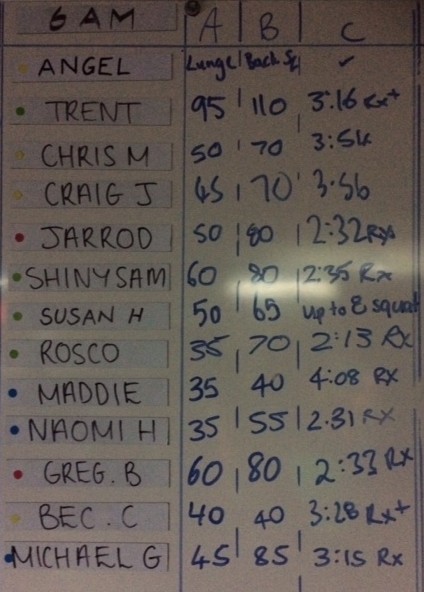 6 AM A B C
ANGEL Lunge Back Sq ✓
TRENT 95 110 3:16 Rx+
CHRIS M 50 70 3:54
CRAIG J 45 70 3:56
JARROD 50 80 2:32 Rx
SHINYSAM 60 80 2:35 Rx
SUSAN H 50 65 up to 8 squat
ROSCO 35 70 2:13 Rx
MADDIE 35 40 4:08 Rx
NAOMI H 35 55 2.31 Rx
GREG. B 60 80 2:33 Rx
BEC. C 40 40 3:28 Rx+
MICHAEL G 45 85 3:15 Rx